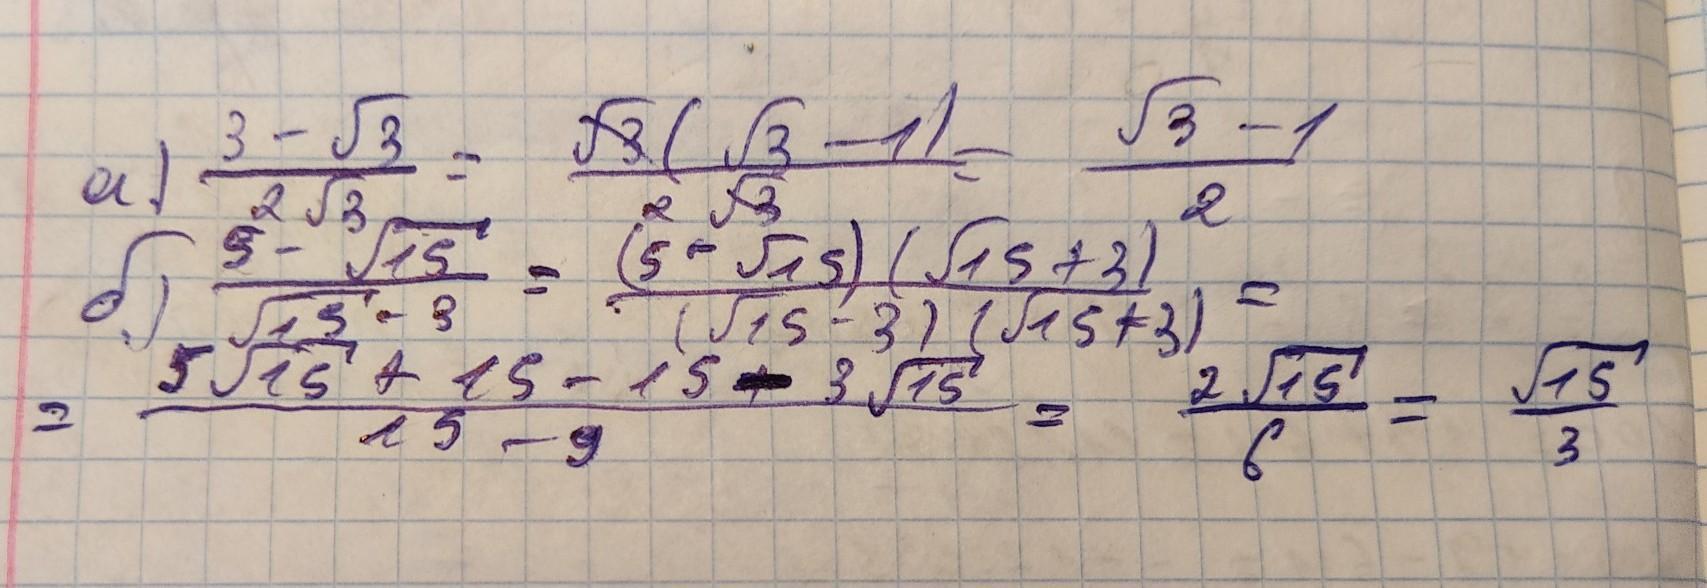 а) (3 - √3)/(2√3) = (√3(√3 - 1))/(2√3) = (√3 - 1)/2
б) (5 - √15)/(√15 - 3) = ((5 - √15)(√15 + 3))/((√15 - 3)(√15 + 3)) =
= (5√15 + 15 - 15 - 3√15)/(15 - 9) = (2√15)/6 = √15/3